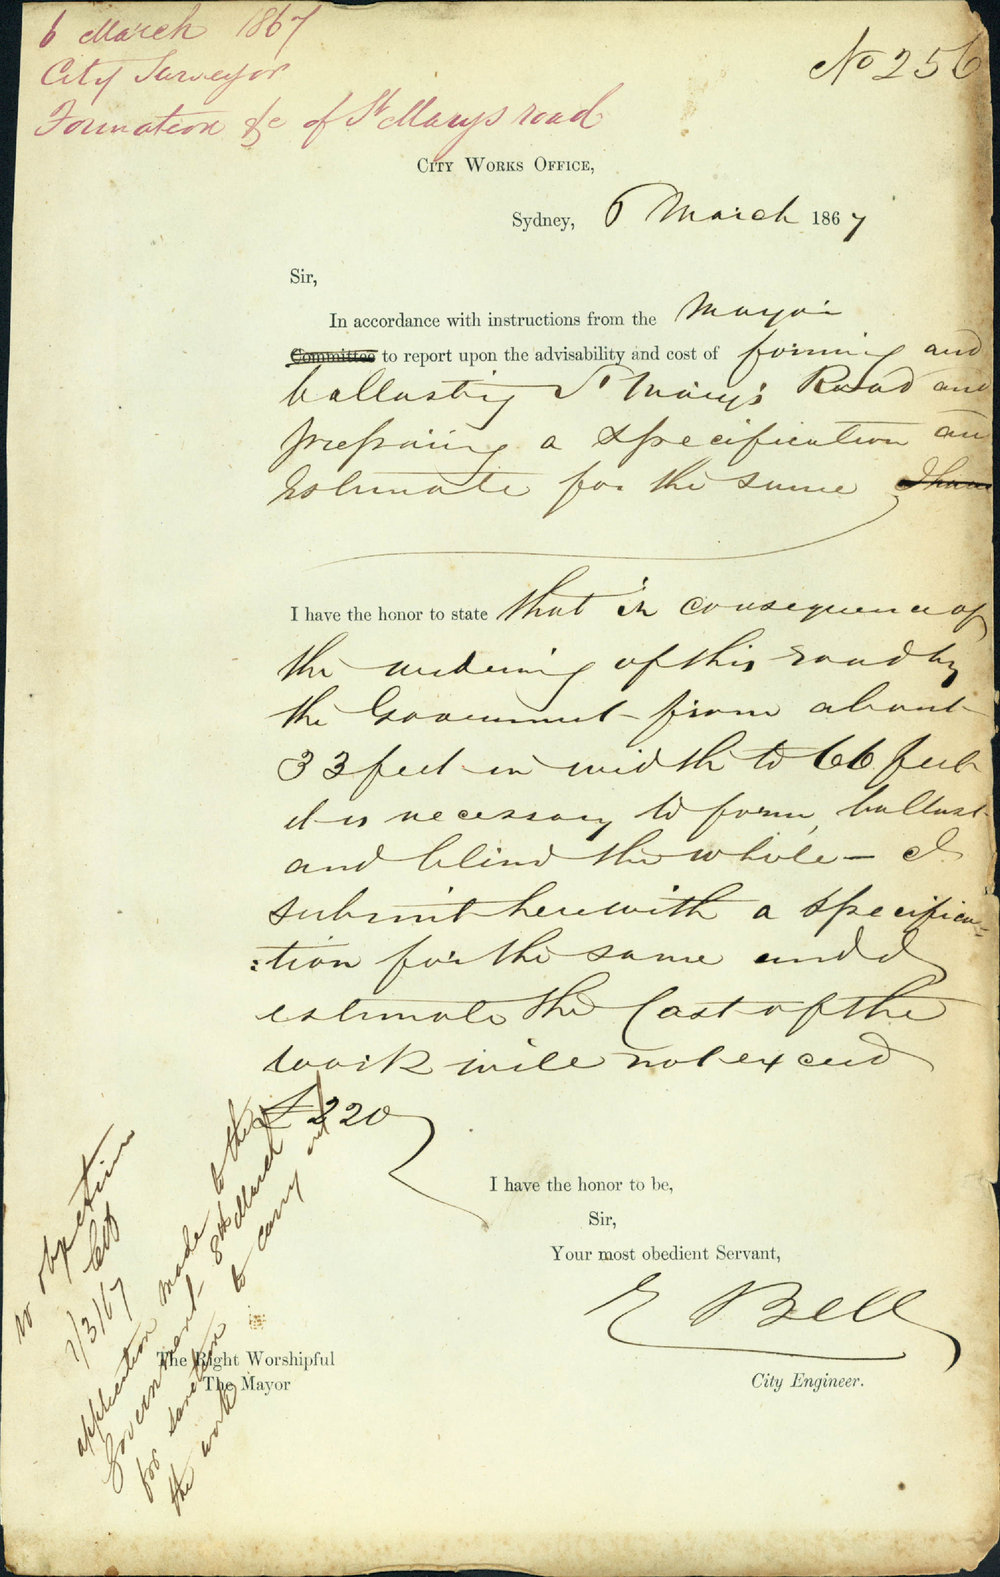 6 March 1867
City Surveyor
Formation &c of St Marys road
No 256
City Works Office,
Sydney, 6 March 1867
Sir,
In accordance with instructions from the Mayor
Committee to report upon the advisability and cost of forming and
ballasting St Mary's Road and
preparing a specification an
Estimate for the same I have
I have the honor to state that in consequence of
the widening of this road by
the Government from about
33 feet in width to 66 feet
it is necessary to form, ballast
and blind the whole – I
submit herewith a specifica=
:tion for the same and I
estimate the Cost of the
work will not exceed
£220
I have the honor to be,
Sir,
Your most obedient Servant,
E Bell
City Engineer.
The Right Worshipful
The Mayor
no objection
7/3/67
application made to the
Government 8th March
for sanction to carry out
the work